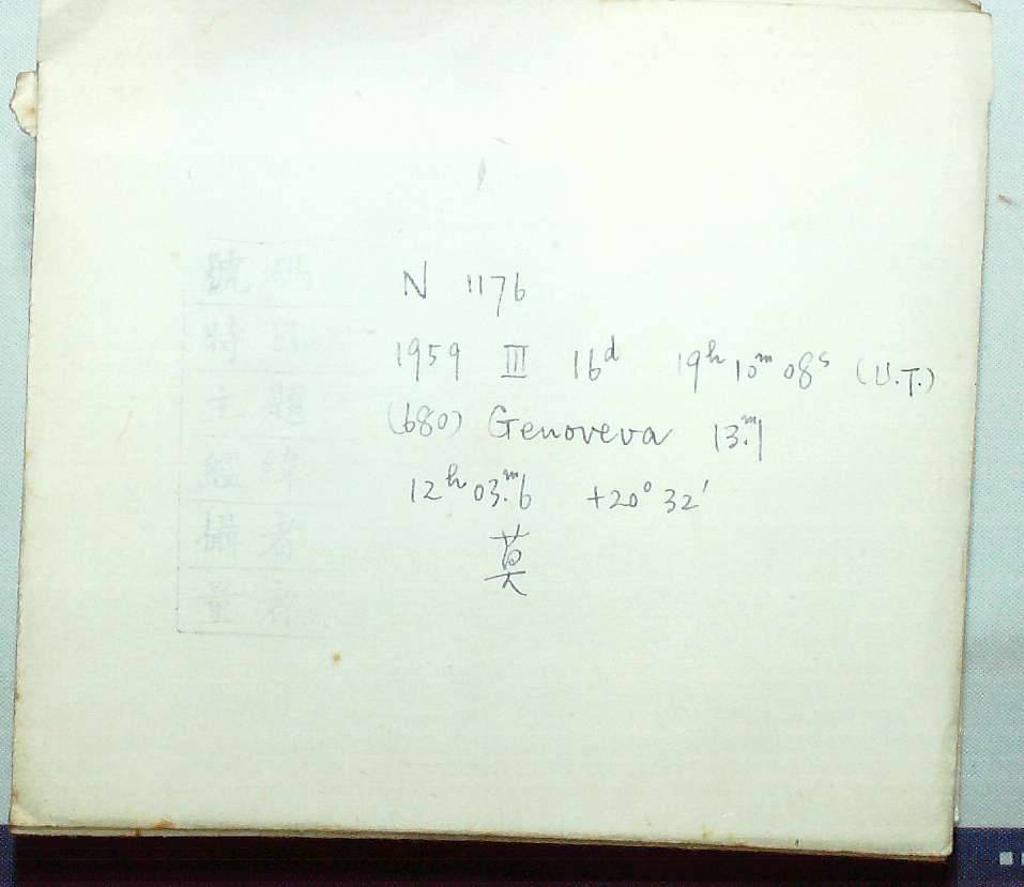 號碼
時日
主題
經緯
攝者
量者
N 1176
1959 III 16ᵈ 19ʰ10ᵐ08ˢ (U.T.)
(680) Genoveva 13.ᵐ1
12ʰ03.ᵐ6 +20°32′
莫